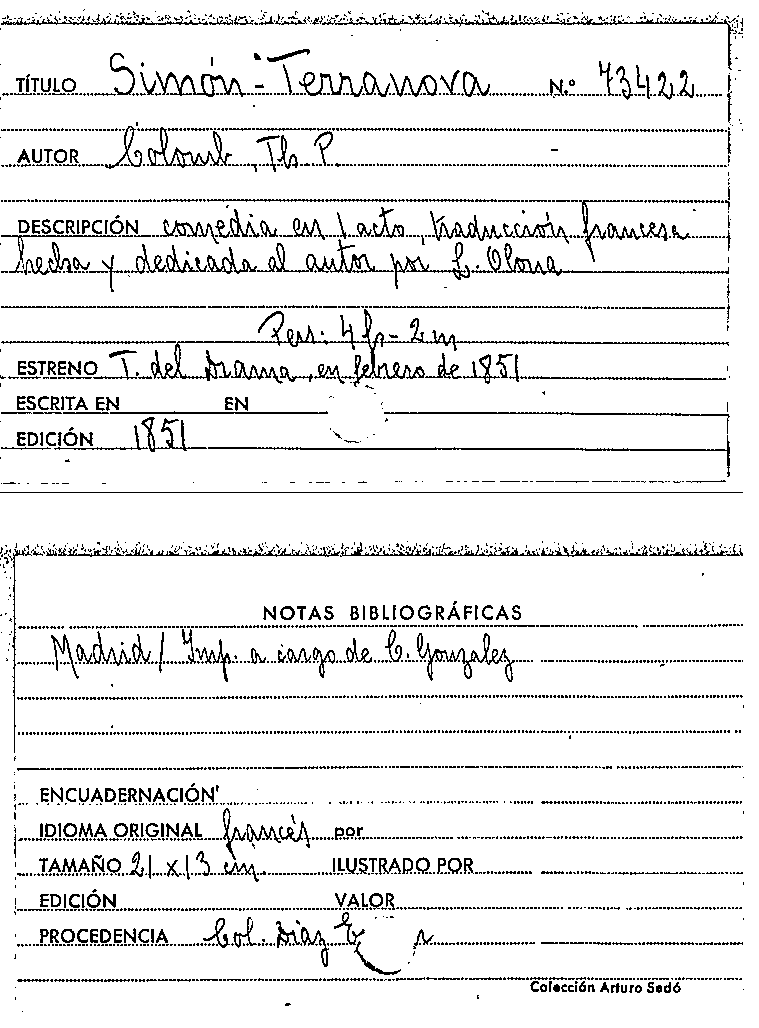 TÍTULO Simón-Terranova N.º 73422
AUTOR Colomb, Th. P. -
DESCRIPCIÓN comedia en 1 acto, traducción francesa
hecha y dedicada al autor por L. Olona
Pers: 4 h - 2 m
ESTRENO T. del Drama, en febrero de 1851
ESCRITA EN EN
EDICIÓN 1851
NOTAS BIBLIOGRÁFICAS
Madrid / Imp. a cargo de C. Gonzalez
ENCUADERNACIÓN
IDIOMA ORIGINAL francés por
TAMAÑO 21 x 13 cm. ILUSTRADO POR
EDICIÓN VALOR
PROCEDENCIA Col. Diaz
Colección Arturo Sedó